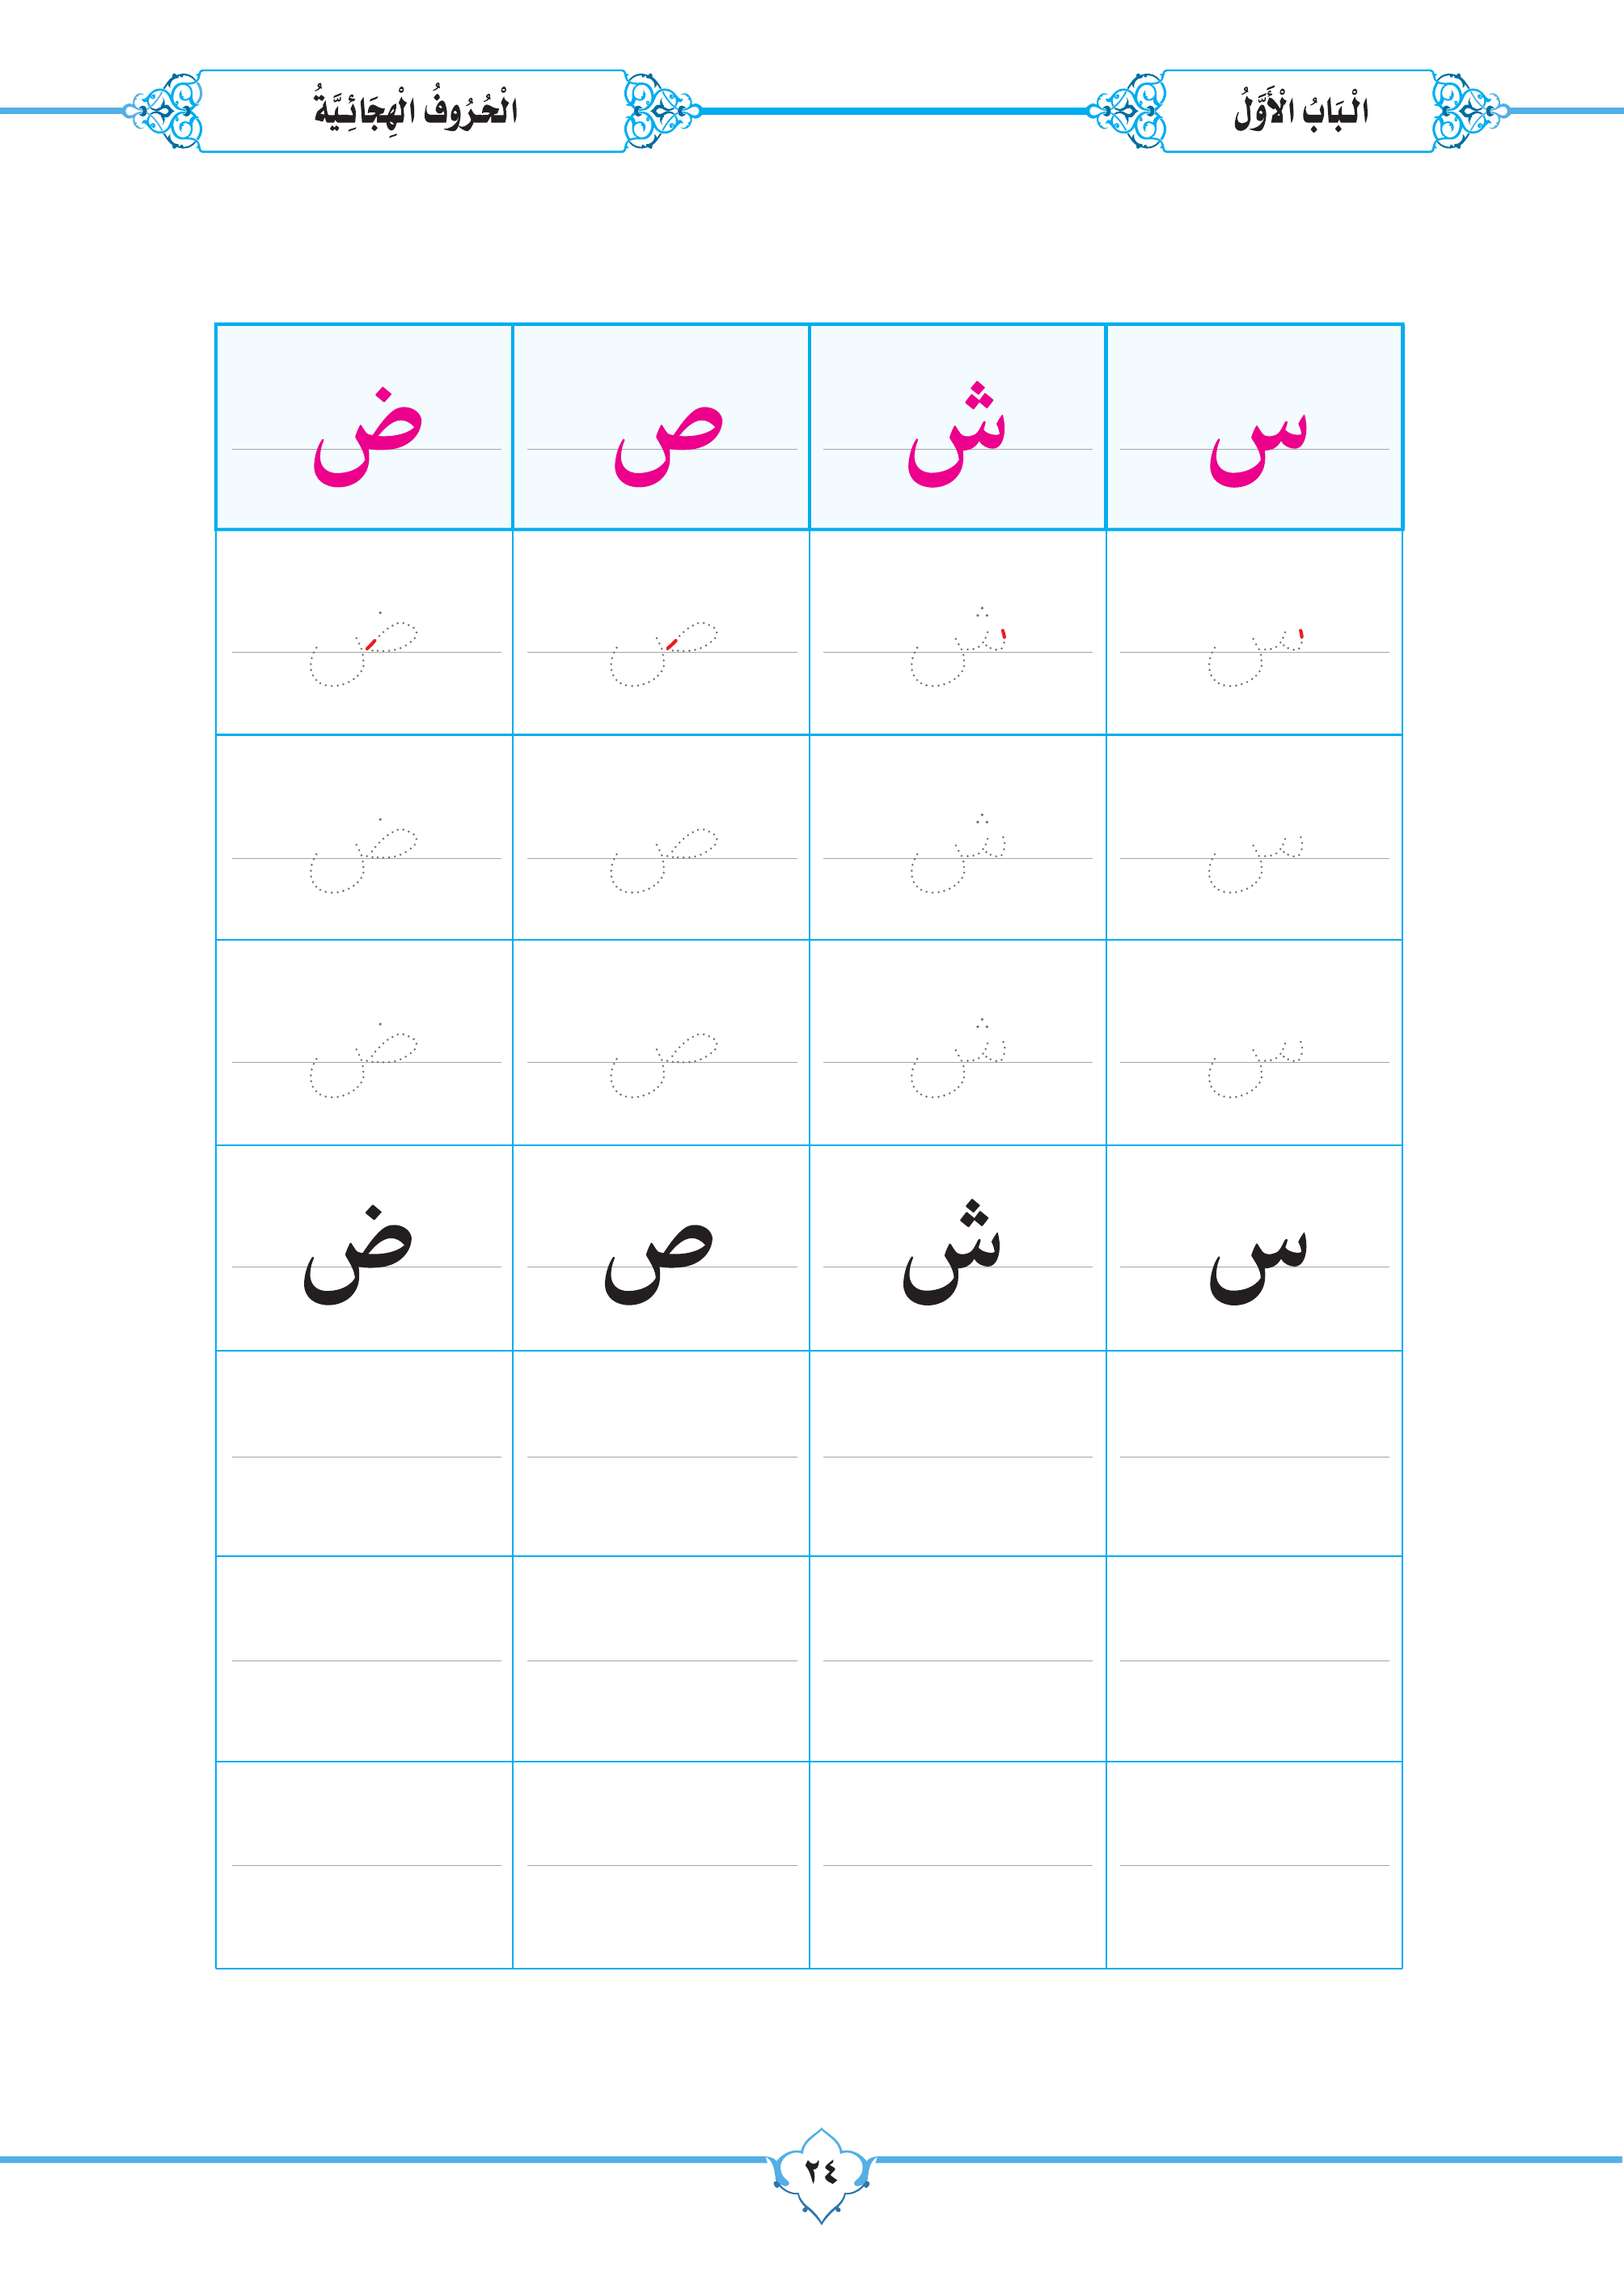 الْبَابُ الْأَوَّلُ
الْحُرُوفُ الْهِجَائِيَّةُ
س ش ص ض
س ش ص ض
س ش ص ض
س ش ص ض
س ش ص ض
٢٤